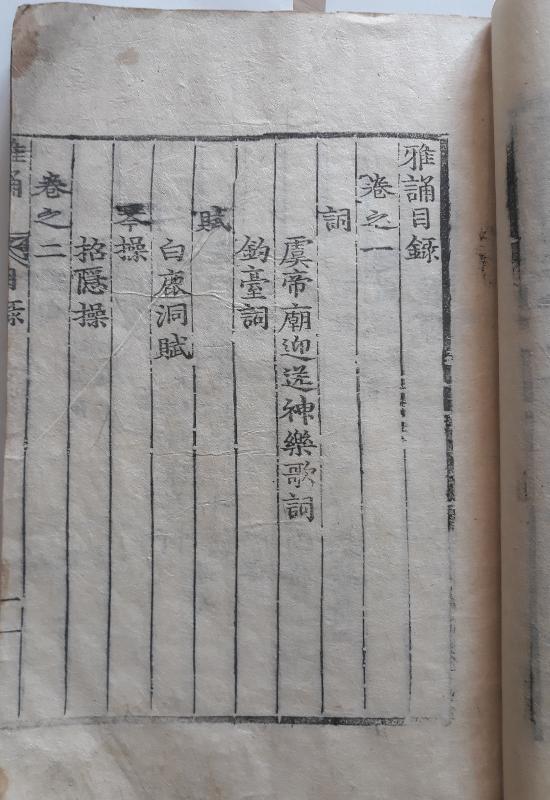 雅誦目録
卷之一
詞
虞帝廟迎送神樂歌詞
釣臺詞
賦
白鹿洞賦
琴操
招隱操
卷之二
雅誦 目録